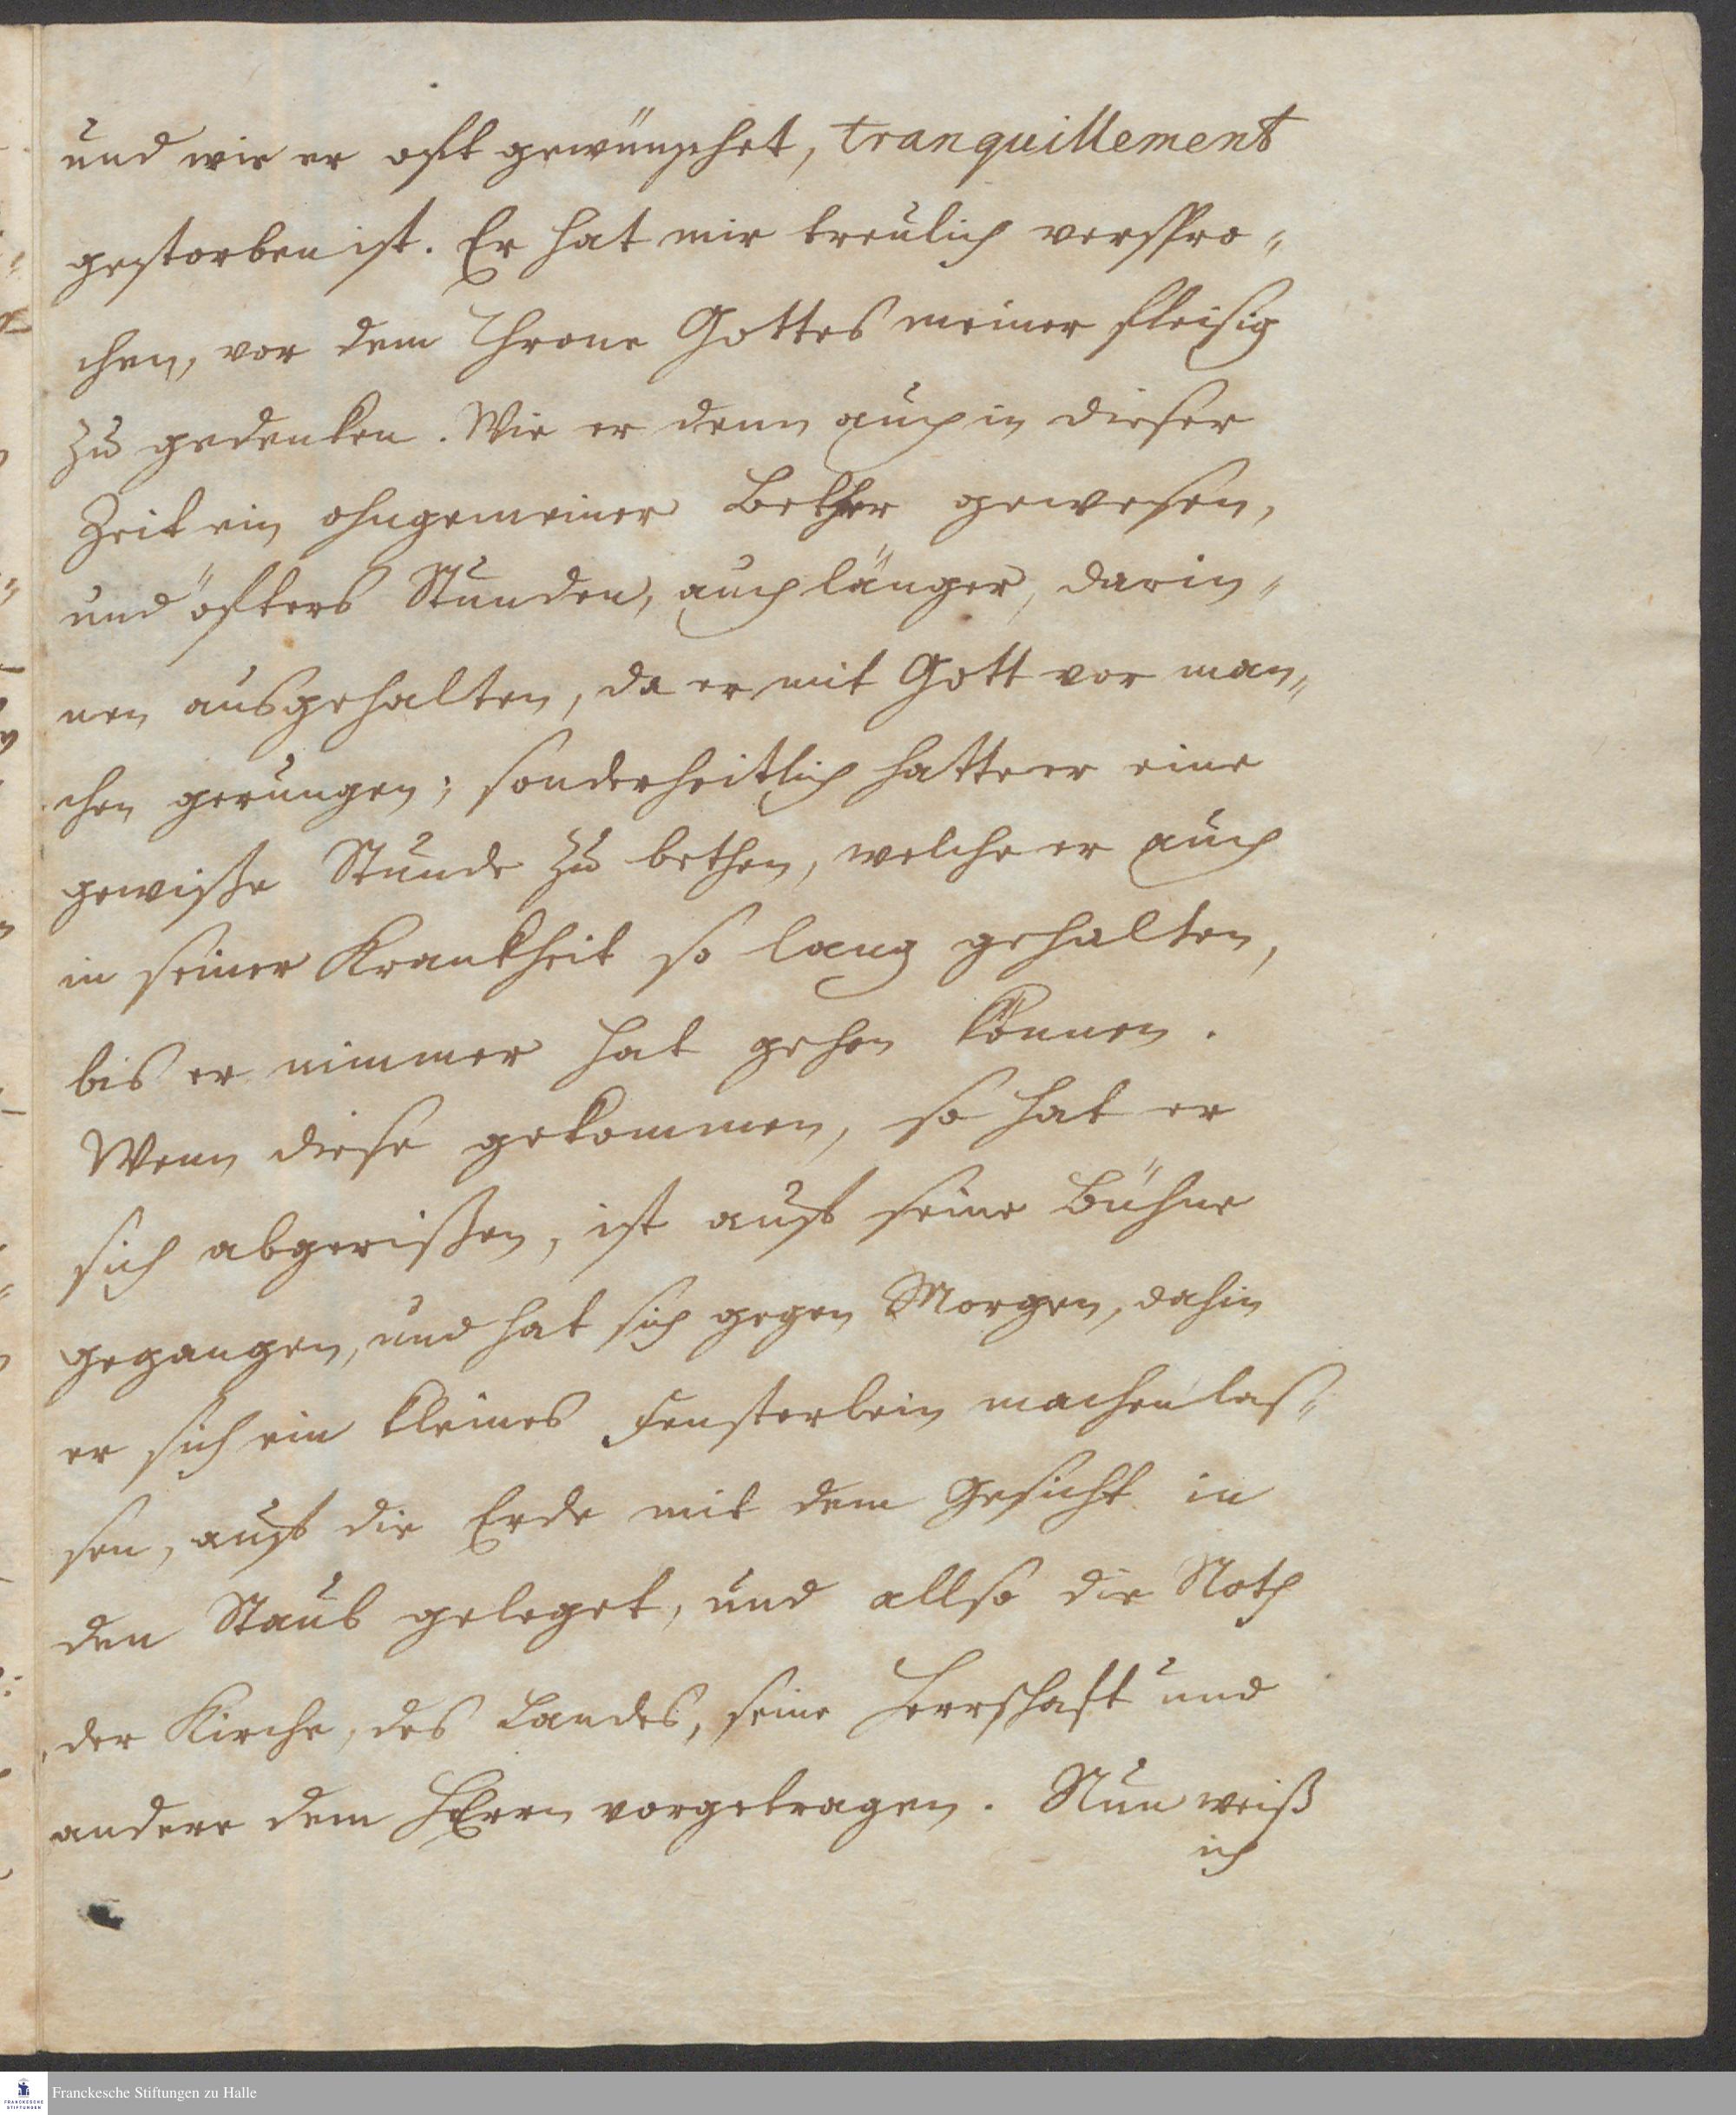 und wie er oft gewünschet, tranquillement
gestorben ist. Er hat mir treulich verspro-
chen, vor dem Throne Gottes meiner fleisig
zu gedenken. Wie er denn auch in dieser
Zeit ein ohngemeiner Bether gewesen,
und öfters Stunden, auch länger, darin-
nen ausgehalten, da er mit Gott vor man-
chen gerungen; sonderheitlich hatte er eine
gewiße Stunde zu bethen, welche er auch
in seiner Krankheit so lang gehalten,
bis er nimmer hat gehen können.
Wenn diese gekommen, so hat er
sich abgerißen, ist auf seine Bühne
gegangen, und hat sich gegen Morgen, dahin
er sich ein kleines Fensterlein machen las-
sen, auf die Erde mit dem Gesicht in
den Staub geleget, und allso die Noth
der Kirche, des Landes, seine Herrschaft und
andere dem HErrn vorgetragen. Nun weiß
ich
Franckesche Stiftungen zu Halle
FRANCKESCHE
STIFTUNGEN